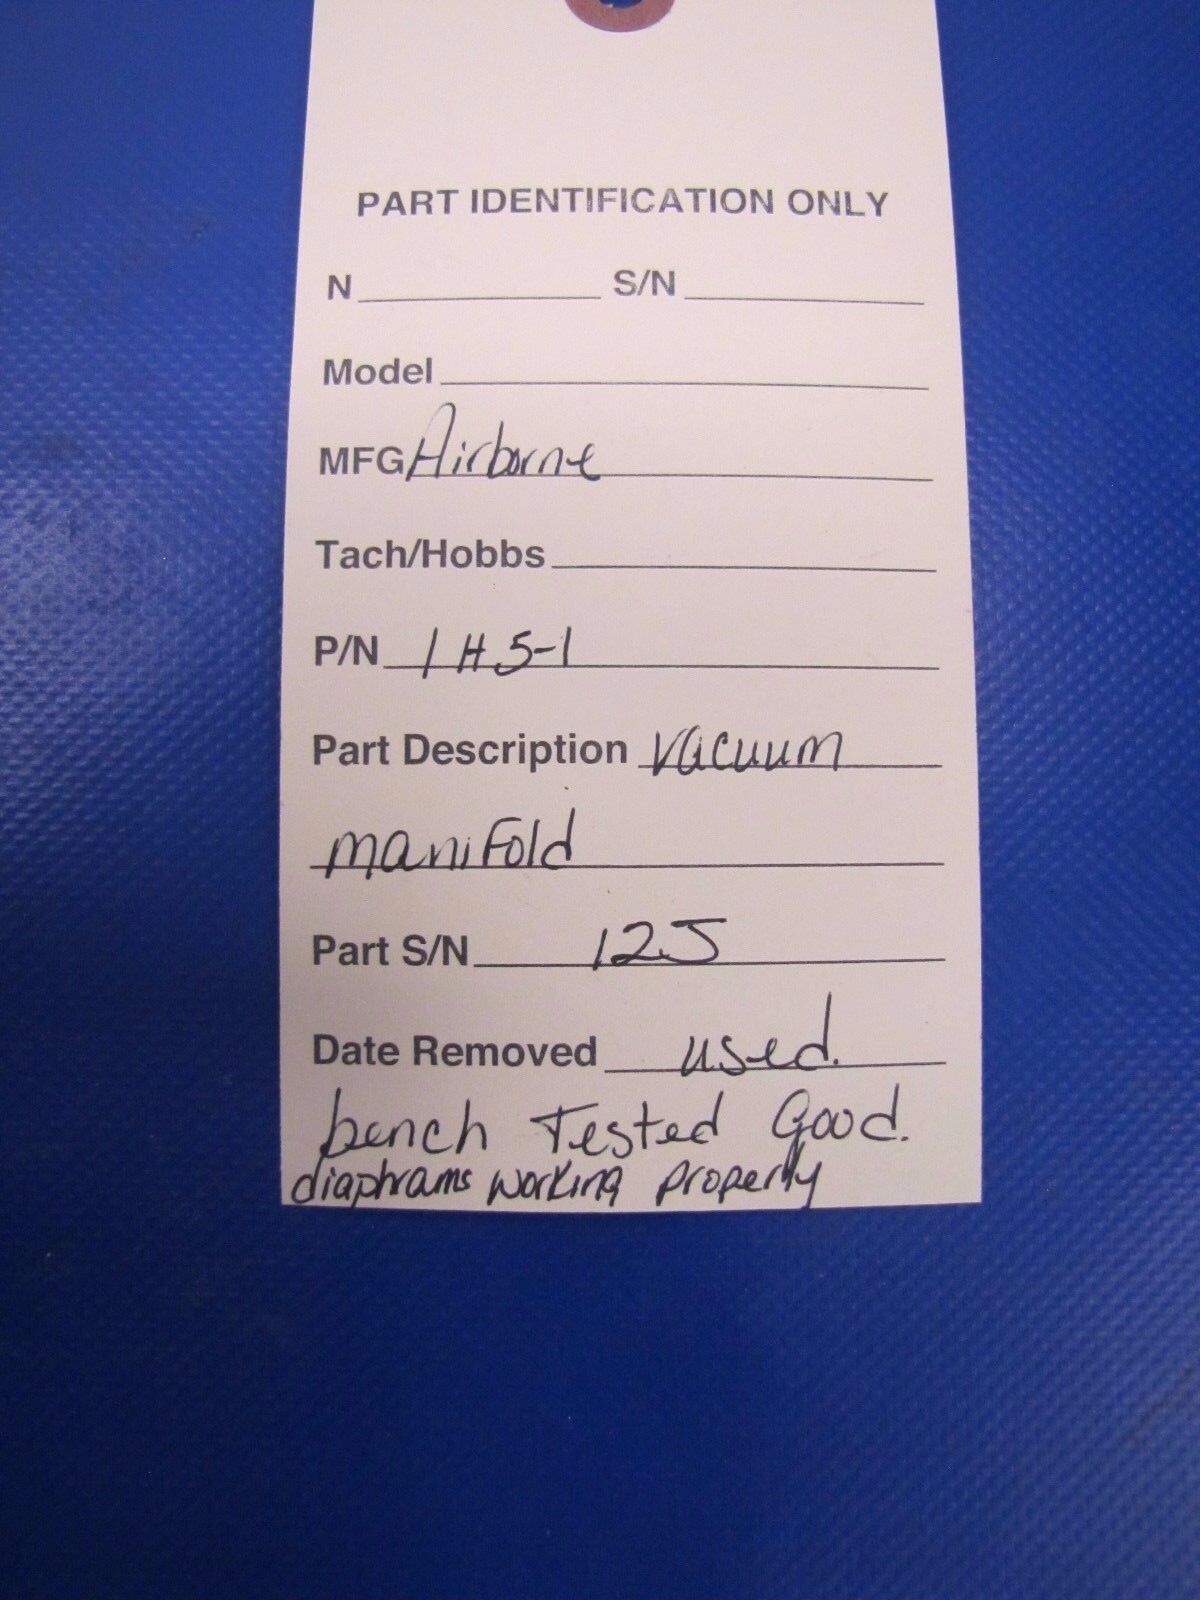 PART IDENTIFICATION ONLY
N S/N
Model
MFG Airborne
Tach/Hobbs
P/N 1H5-1
Part Description Vacuum
maniFold
Part S/N 12J
Date Removed used.
bench Tested Good.
diaphrams working properly